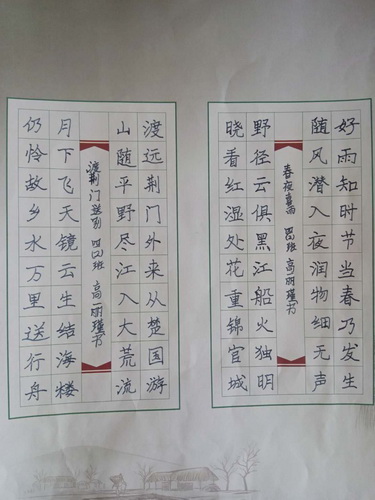 好雨知时节当春乃发生
随风潜入夜润物细无声
春夜喜雨 班 高丽瑾书
野径云俱黑江船火独明
晓看红湿处花重锦官城
渡远荆门外来从楚国游
山随平野尽江入大荒流
渡荆门送别 班 高丽瑾书
月下飞天镜云生结海楼
仍怜故乡水万里送行舟